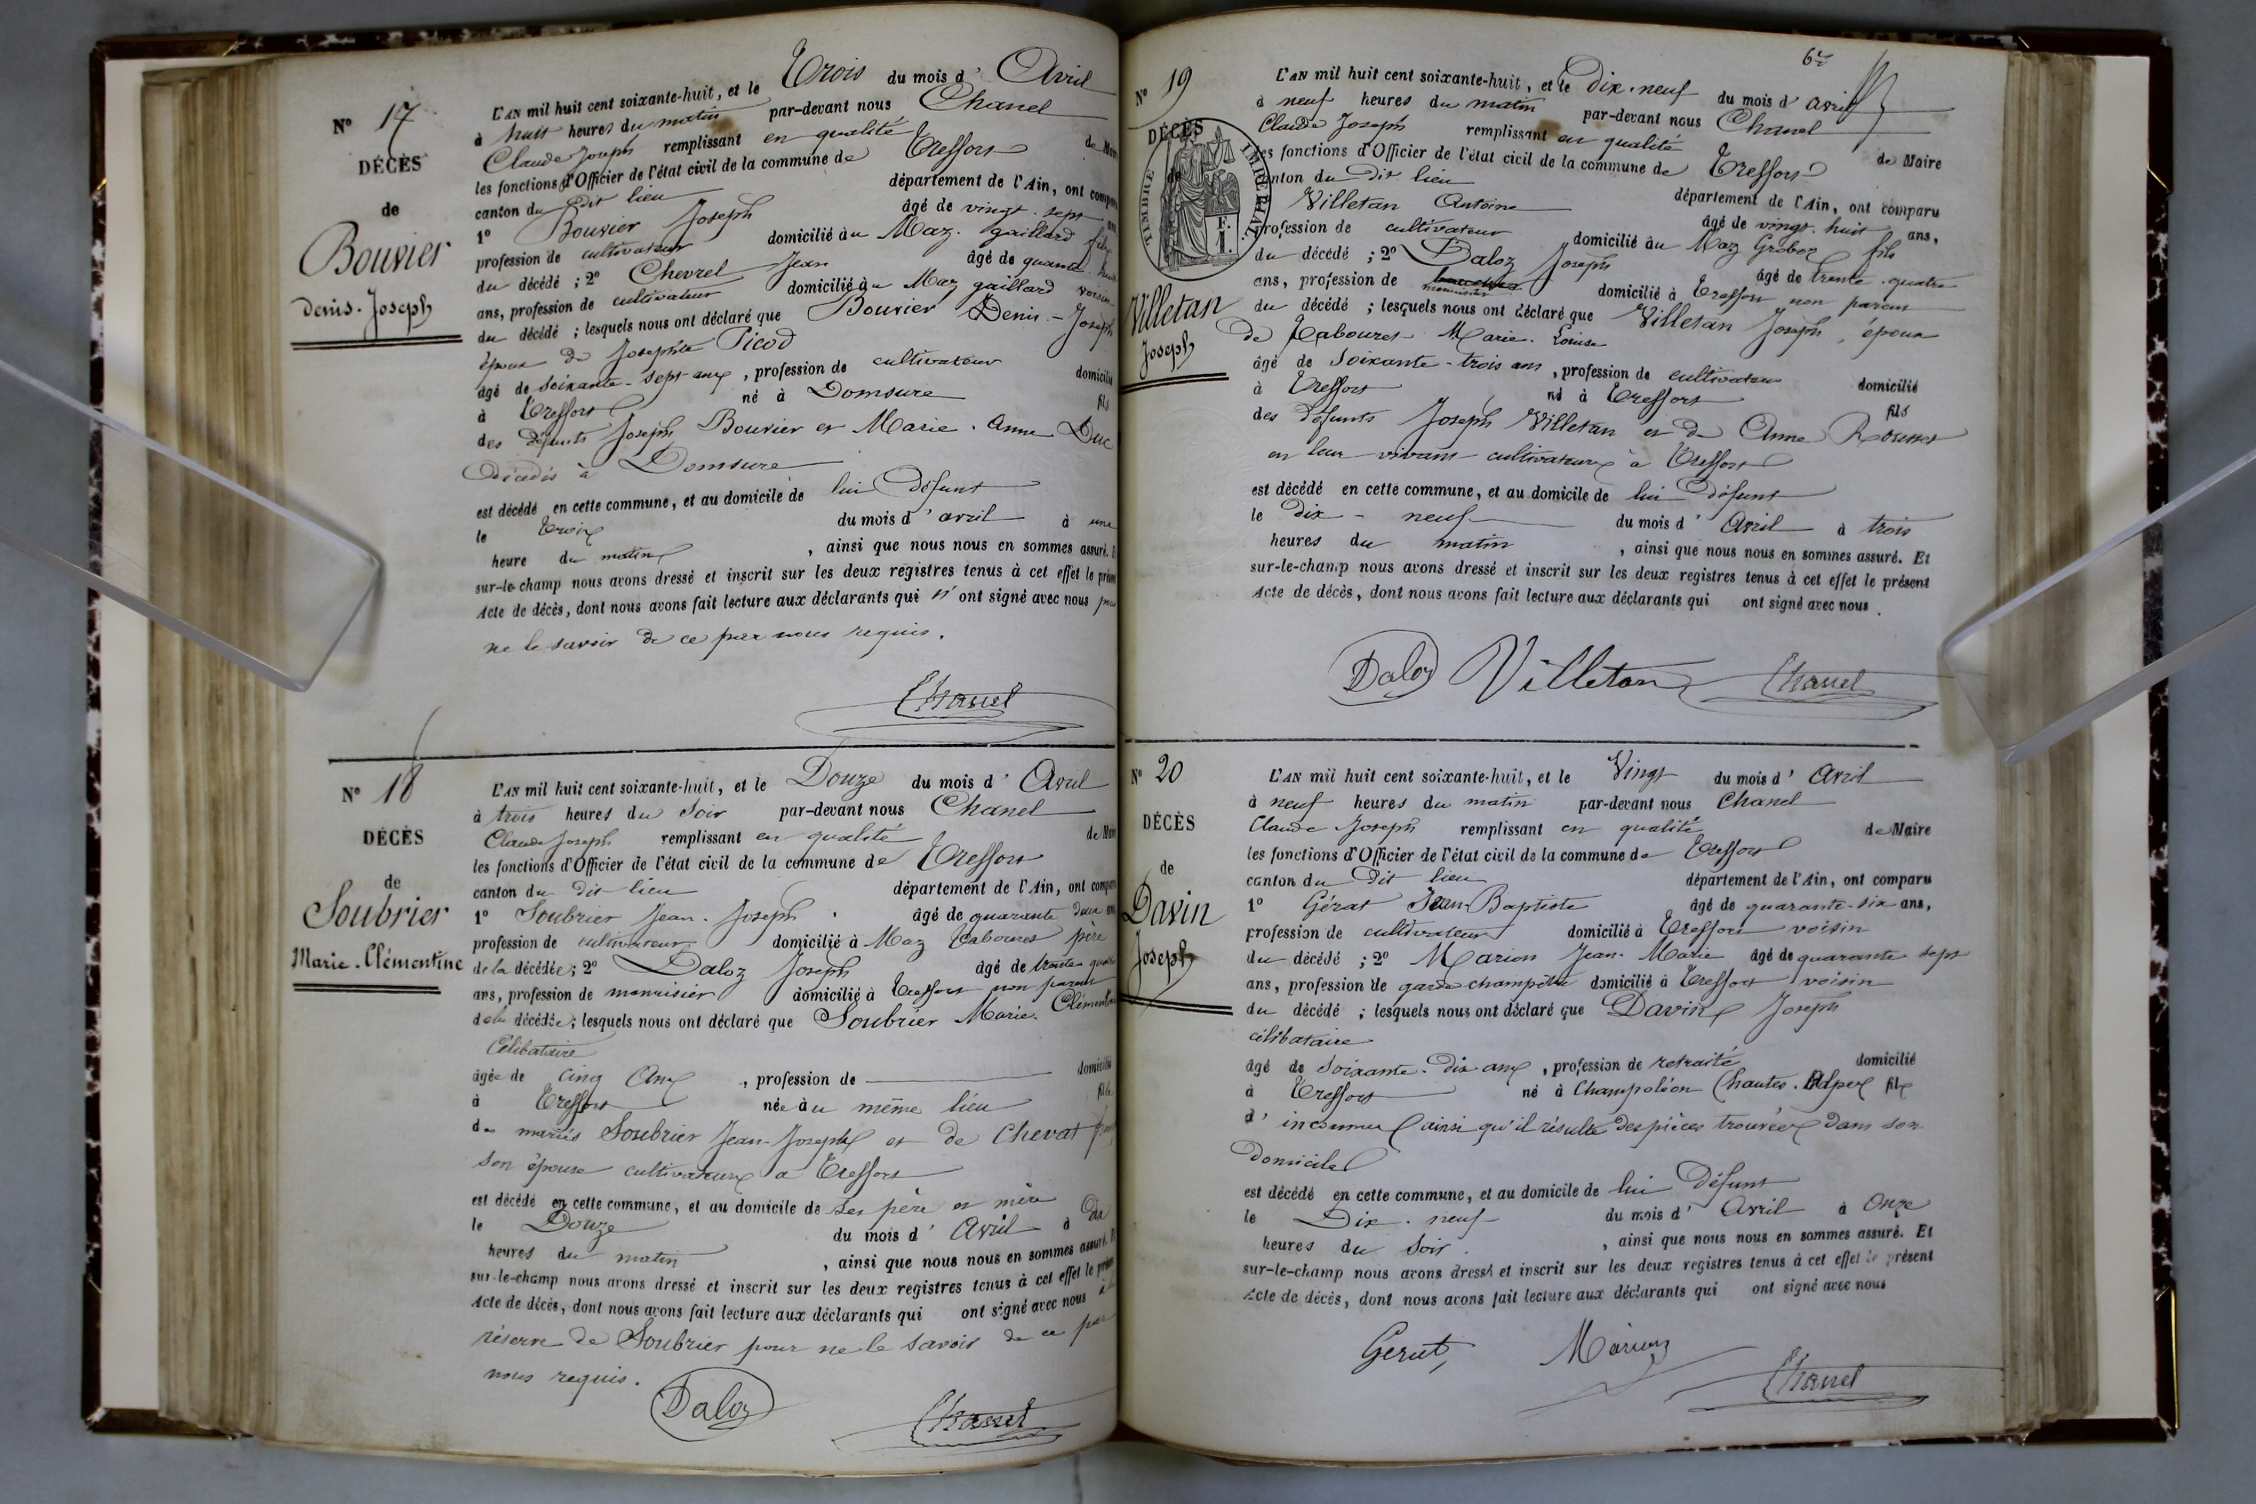 N° 17
DÉCÈS
de
Bouvier
Denis-Joseph
L'AN mil huit cent soixante-huit, et le Trois du mois d'Avril
à huit heures du matin par-devant nous Chanel
Claude Joseph remplissant en qualité de
les fonctions d'Officier de l'état civil de la commune de Treffort
canton du dit lieu département de l'Ain, ont
1° Bouvier Joseph âgé de vingt-sept ans
profession de cultivateur domicilié au Maz-gaillard fils
du décédé ; 2° Chevrel Jean âgé de quarante-huit
ans, profession de cultivateur domicilié au Maz gaillard voisin
du décédé ; lesquels nous ont déclaré que Bouvier Denis-Joseph
époux de Josephte Picod
âgé de soixante-sept ans, profession de cultivateur domicilié
à Treffort né à Domsure fils
des défunts Joseph Bouvier et Marie-Anne Duc
décédés à Domsure
est décédé en cette commune, et au domicile de lui défunt
le trois du mois d'avril à une
heure du matin, ainsi que nous nous en sommes assuré.
sur-le-champ nous avons dressé et inscrit sur les deux registres tenus à cet effet le
Acte de décès, dont nous avons fait lecture aux déclarants qui n'ont signé avec nous pour
ne le savoir de ce par nous requis.
Chanel
N° 18
DÉCÈS
de
Soubrier
Marie-Clémentine
L'AN mil huit cent soixante-huit, et le Douze du mois d'Avril
à trois heures du Soir par-devant nous Chanel
Claude Joseph remplissant en qualité de
les fonctions d'Officier de l'état civil de la commune de Treffort
canton du dit lieu département de l'Ain, ont
1° Soubrier Jean-Joseph âgé de quarante deux
profession de cultivateur domicilié à Maz Tabouret père
de la décédée ; 2° Daloz Joseph âgé de trente quatre
ans, profession de menuisier domicilié à Treffort non parent
de la décédée ; lesquels nous ont déclaré que Soubrier Marie-Clémentine
Célibataire
âgée de cinq ans, profession de domicilié
à Treffort née au même lieu fille
des mariés Soubrier Jean-Joseph et de Chevat
son épouse cultivateurs à Treffort
est décédé en cette commune, et au domicile de ses père et mère
le Douze du mois d'Avril à dix
heures du matin, ainsi que nous nous en sommes assuré.
sur-le-champ nous avons dressé et inscrit sur les deux registres tenus à cet effet le
Acte de décès, dont nous avons fait lecture aux déclarants qui ont signé avec nous
réserve de Soubrier pour ne le savoir de ce par
nous requis.
Daloz Chanel
N° 19
DÉCÈS
TIMBRE IMPÉRIAL
Villetan
Joseph
L'AN mil huit cent soixante-huit, et le Dix-neuf du mois d'avril
à neuf heures du matin par-devant nous Chanel
Claude Joseph remplissant en qualité de Maire
les fonctions d'Officier de l'état civil de la commune de Treffort
canton du dit lieu département de l'Ain, ont comparu
Villetan Antoine âgé de vingt-huit ans,
profession de cultivateur domicilié au Maz Groboz fils
du décédé ; 2° Daloz Joseph âgé de trente-quatre
ans, profession de menuisier domicilié à Treffort non parent
du décédé ; lesquels nous ont déclaré que Villetan Joseph, époux
de Tabouret Marie-Louise
âgé de soixante-trois ans, profession de cultivateur domicilié
à Treffort né à Treffort fils
des défunts Joseph Villetan et de Anne Rousset
en leur vivant cultivateurs à Treffort
est décédé en cette commune, et au domicile de lui défunt
le dix-neuf du mois d'Avril à trois
heures du matin, ainsi que nous nous en sommes assuré. Et
sur-le-champ nous avons dressé et inscrit sur les deux registres tenus à cet effet le présent
Acte de décès, dont nous avons fait lecture aux déclarants qui ont signé avec nous.
Daloz Villetan Chanel
N° 20
DÉCÈS
de
Davin
Joseph
L'AN mil huit cent soixante-huit, et le Vingt du mois d'Avril
à neuf heures du matin par-devant nous Chanel
Claude Joseph remplissant en qualité de Maire
les fonctions d'Officier de l'état civil de la commune de Treffort
canton du dit lieu département de l'Ain, ont comparu
1° Gérat Jean-Baptiste âgé de quarante-six ans,
profession de cultivateur domicilié à Treffort voisin
du décédé ; 2° Marion Jean-Marie âgé de quarante sept
ans, profession de garde champêtre domicilié à Treffort voisin
du décédé ; lesquels nous ont déclaré que Davin Joseph
célibataire
âgé de soixante-dix ans, profession de retraité domicilié
à Treffort né à Champoléon (hautes-Alpes) fils
d'inconnu (ainsi qu'il résulte des pièces trouvées dans son
domicile)
est décédé en cette commune, et au domicile de lui défunt
le Dix-neuf du mois d'Avril à Onze
heures du Soir, ainsi que nous nous en sommes assuré. Et
sur-le-champ nous avons dressé et inscrit sur les deux registres tenus à cet effet le présent
Acte de décès, dont nous avons fait lecture aux déclarants qui ont signé avec nous
Gerat, Marion Chanel